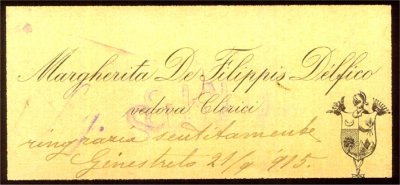 Margherita De Filippis Delfico
vedova Clerici
ringrazia sentitamente
Ginestreto 21/9 915.